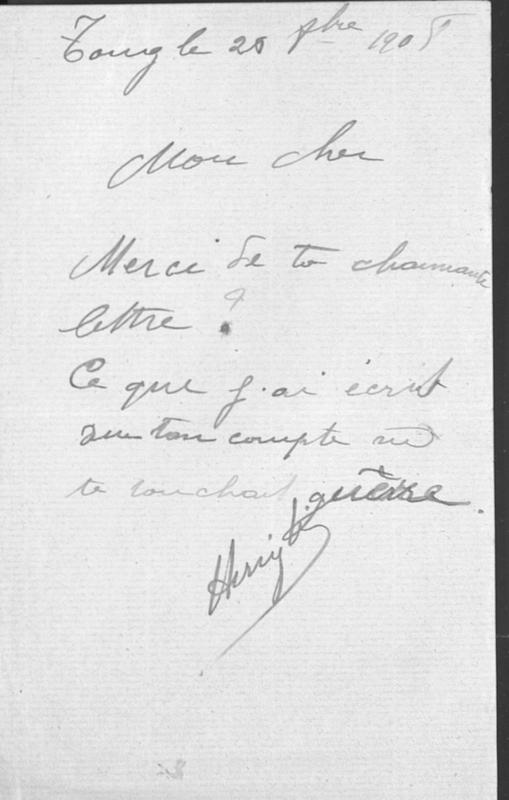 le 20 1905
Mon cher
Merci de ta charmante
lettre ?
Ce que j'ai écrit
sur ton compte ne
te touchait guère.